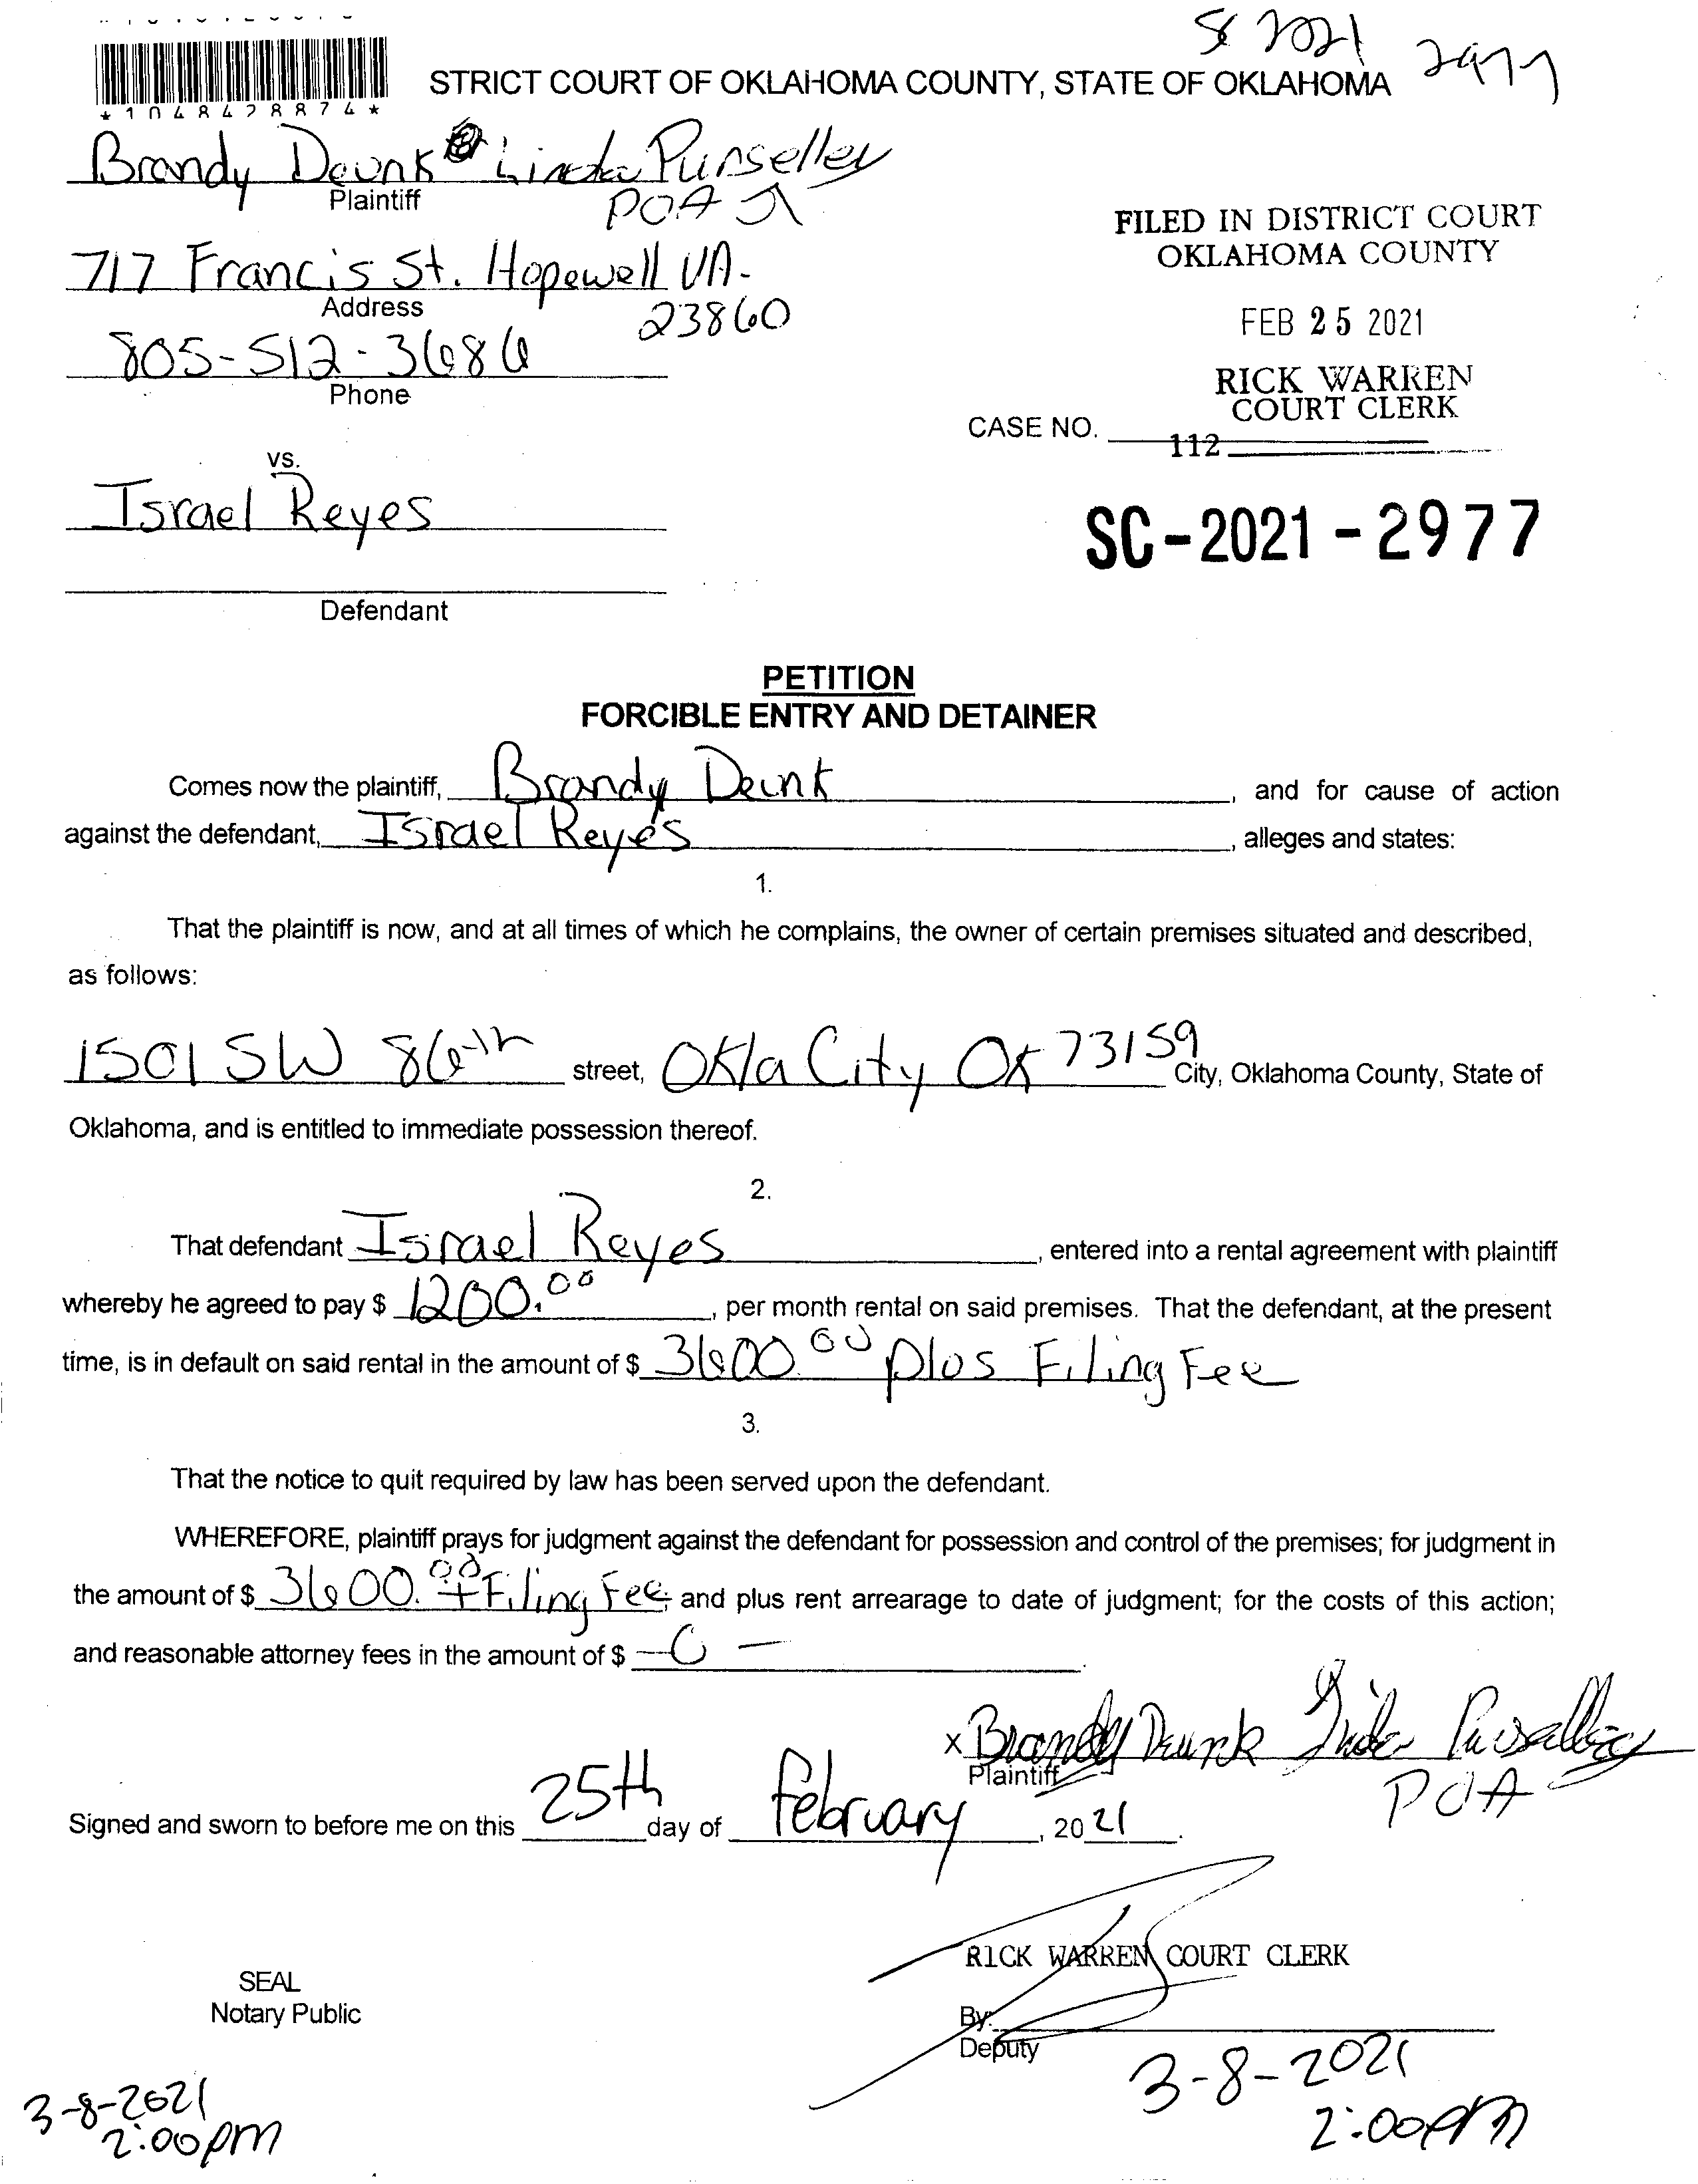 SC 2021
2977
STRICT COURT OF OKLAHOMA COUNTY, STATE OF OKLAHOMA
*1048428874*
Brandy Deunk Linda Purselley
Plaintiff
POA
717 Francis St. Hopewell VA-
Address
23860
805-512-3686
Phone
FILED IN DISTRICT COURT
OKLAHOMA COUNTY
FEB 25 2021
RICK WARREN
COURT CLERK
CASE NO.
112
vs.
Israel Reyes
SC-2021-2977
Defendant
PETITION
FORCIBLE ENTRY AND DETAINER
Comes now the plaintiff, Brandy Deunk, and for cause of action
against the defendant, Israel Reyes, alleges and states:
1.
That the plaintiff is now, and at all times of which he complains, the owner of certain premises situated and described,
as follows:
1501 SW 86th street, Okla City OK 73159 City, Oklahoma County, State of
Oklahoma, and is entitled to immediate possession thereof.
2.
That defendant Israel Reyes, entered into a rental agreement with plaintiff
whereby he agreed to pay $ 1200.00, per month rental on said premises. That the defendant, at the present
time, is in default on said rental in the amount of $ 3600.00 plus Filing Fee
3.
That the notice to quit required by law has been served upon the defendant.
WHEREFORE, plaintiff prays for judgment against the defendant for possession and control of the premises; for judgment in
the amount of $ 3600.00 + Filing Fee; and plus rent arrearage to date of judgment; for the costs of this action;
and reasonable attorney fees in the amount of $ -0-.
x Brandy Deunk Linda Purselley
Plaintiff
POA
Signed and sworn to before me on this 25th day of February, 2021.
RICK WARREN COURT CLERK
SEAL
Notary Public
By:
Deputy
3-8-2021
2:00pm
3-8-2021
2:00pm